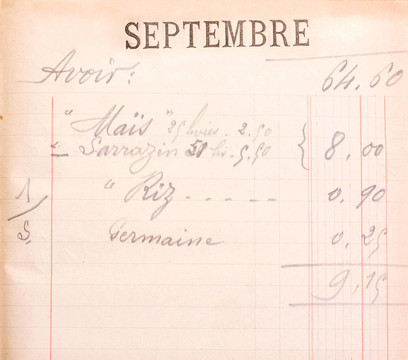 SEPTEMBRE
Avoir: 64.60
" Maïs " 25 livres. 2.50
" Sarrazin 50 liv. 5.50 } 8.00
1/S. " Riz - - - - - 0.90
Germaine 0.25
9.15